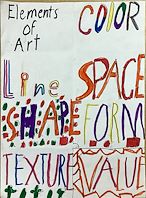 Elements of Art
COLOR
Line
SPACE
SHAPE
FORM
TEXTURE
VALUE